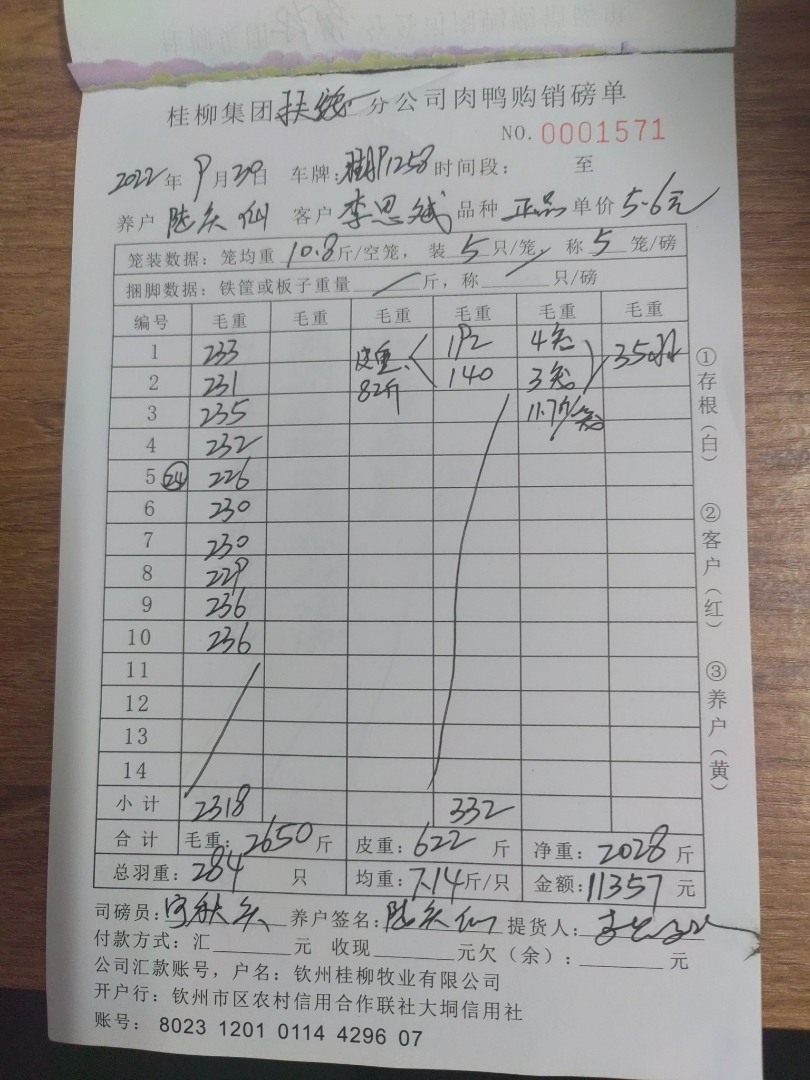 桂柳集团扶绥分公司肉鸭购销磅单
NO. 0001571
2022年9月20日 车牌: 1258 时间段: 至
养户 陆庆仙 客户 李思斌 品种 正品 单价 5.6元
笼装数据: 笼均重 10.8斤/空笼, 装 5 只/笼, 称 5 笼/磅
捆脚数据: 铁筐或板子重量 斤, 称 只/磅
编号 毛重 毛重 毛重 毛重 毛重 毛重
1 233 皮重: 192 4笼 35羽
2 231 82斤 140 3笼
3 235 11.7斤/笼
4 232
5 24 226
6 230
7 230
8 229
9 236
10 236
11
12
13
14
小计 2318 332
合计 毛重: 2650 斤 皮重: 622 斤 净重: 2028 斤
总羽重: 284 只 均重: 7.14 斤/只 金额: 11357 元
司磅员: 养户签名: 陆庆仙 提货人:
付款方式: 汇 元 收现 元欠(余): 元
公司汇款账号, 户名: 钦州桂柳牧业有限公司
开户行: 钦州市区农村信用合作联社大垌信用社
账号: 8023 1201 0114 4296 07
①存根(白)
②客户(红)
③养户(黄)